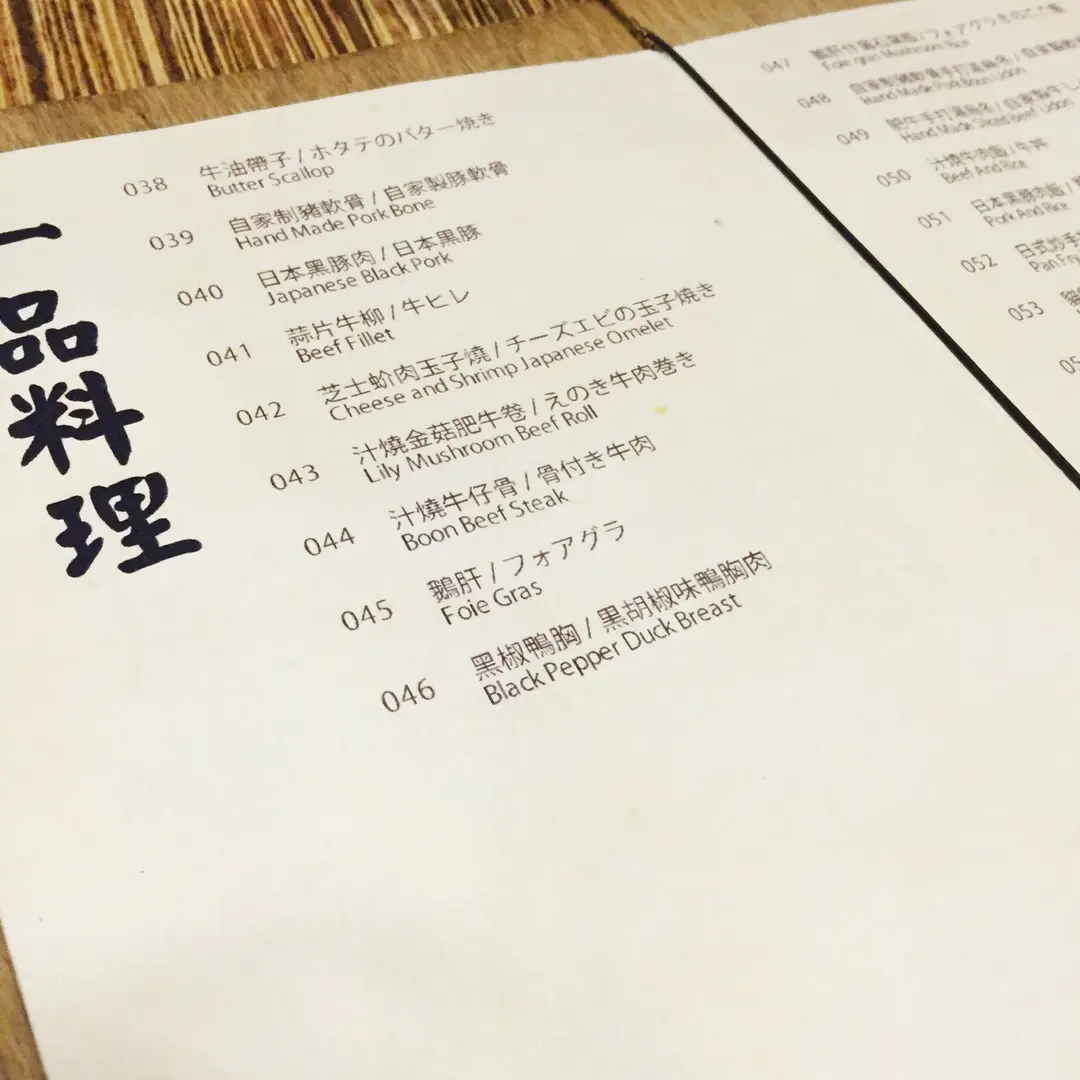 一品料理
038 牛油帶子 / ホタテのバター焼き
Butter Scallop
039 自家制豬軟骨 / 自家製豚軟骨
Hand Made Pork Bone
040 日本黑豚肉 / 日本黒豚
Japanese Black Pork
041 蒜片牛柳 / 牛ヒレ
Beef Fillet
042 芝士蚧肉玉子燒 / チーズエビの玉子焼き
Cheese and Shrimp Japanese Omelet
043 汁燒金菇肥牛卷 / えのき牛肉巻き
Lily Mushroom Beef Roll
044 汁燒牛仔骨 / 骨付き牛肉
Boon Beef Steak
045 鵝肝 / フォアグラ
Foie Gras
046 黑椒鴨胸 / 黒胡椒味鴨胸肉
Black Pepper Duck Breast
047
Foie gras Mushroom Rice
048
Hand Made Pork Boon Udon
049 肥牛手打烏冬 /
Hand Made Sliced Beef Udon
050 汁燒牛肉飯 / 牛丼
Beef And Rice
051 日本黑豚肉飯 /
Pork And Rice
052 日式炒手
Pan Fry
053